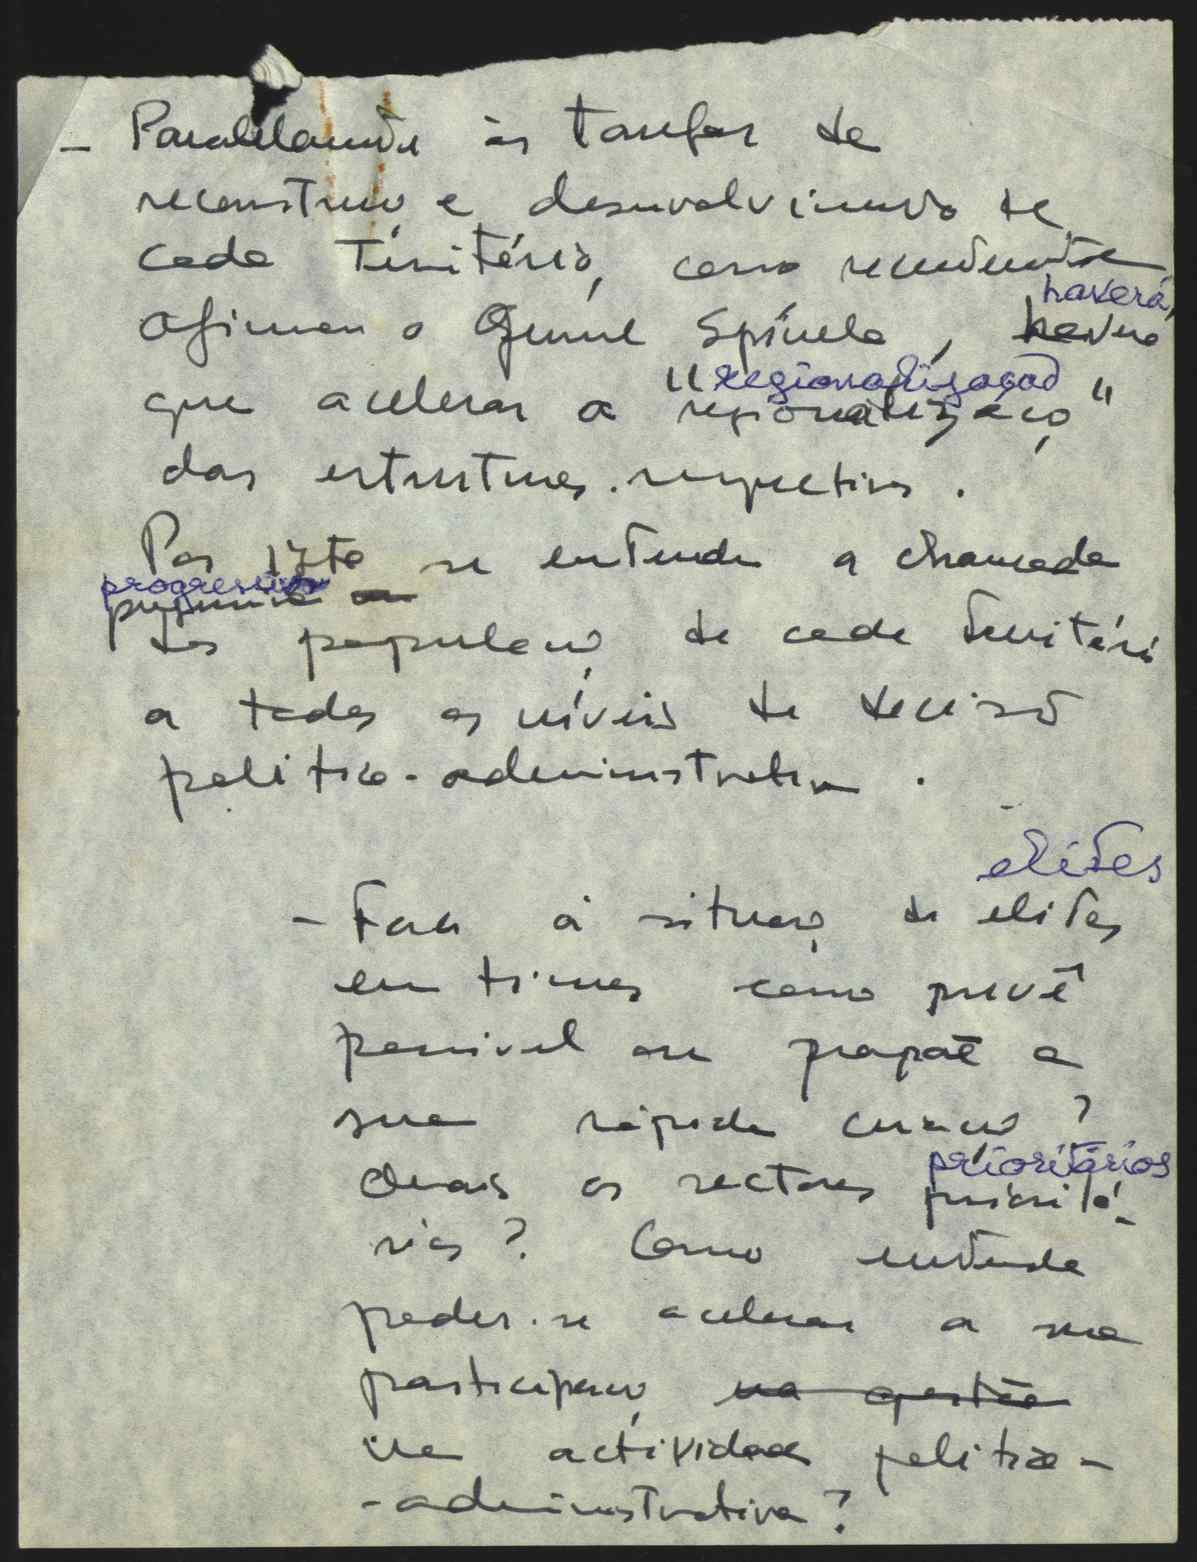 - Paralelamente às tarefas de
reconstrução e desenvolvimento de
cada Território, como recentemente
haverá,
afirmou o General Spínola, haverá
"regionalização"
que acelerar a regionalização
das estruturas respectivas.
Por isto se entende a chamada
progressiva
progressiva
das populações de cada Território
a todos os níveis de decisão
político-administrativa.
elites
- Face à situação de elites
em Timor como prevê
possível ou propõe a
sua rápida criação?
prioritários
Quais os sectores prioritá-
rios? Como entende
poder-se acelerar a sua
participação na gestão
na actividade política-
-administrativa?